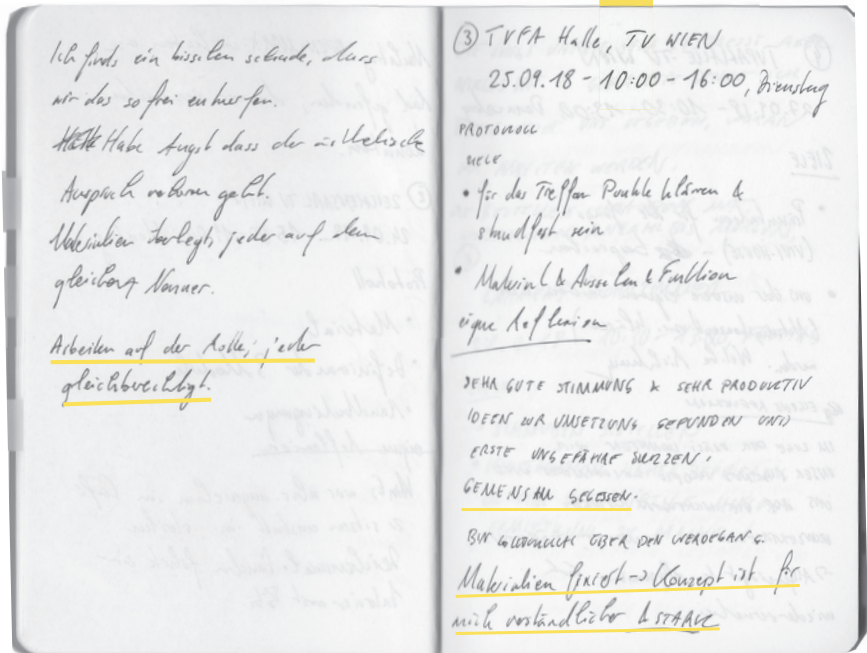 Ich finds ein bisschen schade, dass
wir das so frei entwerfen.
Habe Angst dass der ästhetische
Anspruch verloren geht.
Materialien überlegt, jeder auf dem
gleichen Nenner.
Arbeiten auf der Rolle; jeder
gleichberechtigt.
③ TVFA Halle, TU WIEN
25.09.18 - 10:00 - 16:00, Dienstag
PROTOKOLL
ZIELE
• für das Treffen Punkte klären &
standfest sein
• Material & Aussehen & Funktion
eigne Reflexion
SEHR GUTE STIMMUNG & SEHR PRODUKTIV
IDEEN ZUR UMSETZUNG GEFUNDEN UND
ERSTE UNGEFÄHRE SKIZZEN.
GEMEINSAM GEGESSEN.
BIN GLÜCKLICH ÜBER DEN WERDEGANG.
Materialien fixiert → Konzept ist für
mich verständlicher & STARK